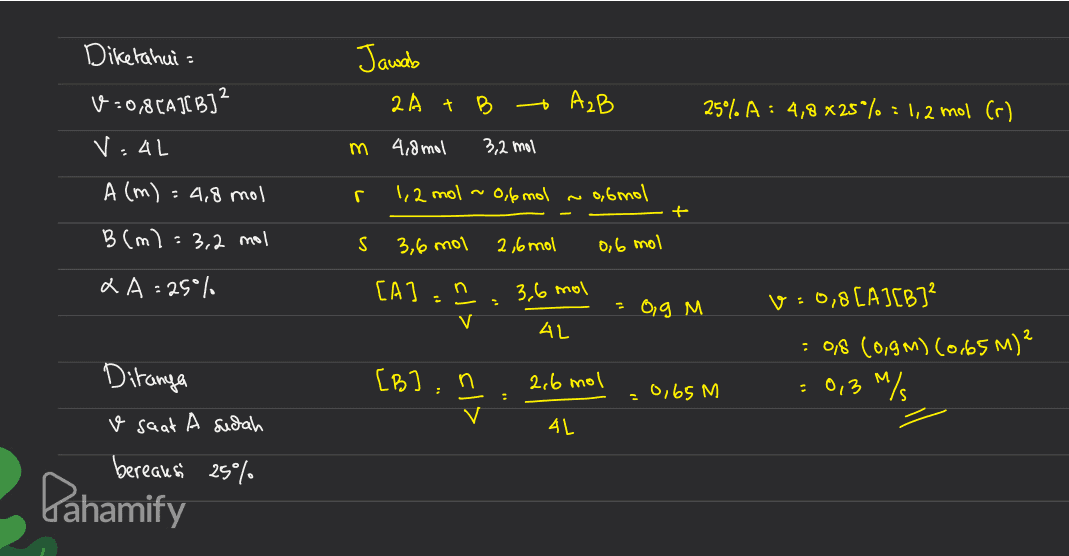 Diketahui :
v = 0,8[A][B]²
V = 4L
A (m) = 4,8 mol
B (m) = 3,2 mol
α A = 25%
Ditanya
v saat A sudah
bereaksi 25%
Jawab
2A + B → A₂B
m 4,8 mol 3,2 mol
r 1,2 mol ~ 0,6 mol ~ 0,6 mol +
s 3,6 mol 2,6 mol 0,6 mol
[A] = n/V = 3,6 mol/4L = 0,9 M
[B] = n/V = 2,6 mol/4L = 0,65 M
25% A : 4,8 x 25% = 1,2 mol (r)
v = 0,8[A][B]²
= 0,8 (0,9M) (0,65 M)²
= 0,3 M/s
Pahamify